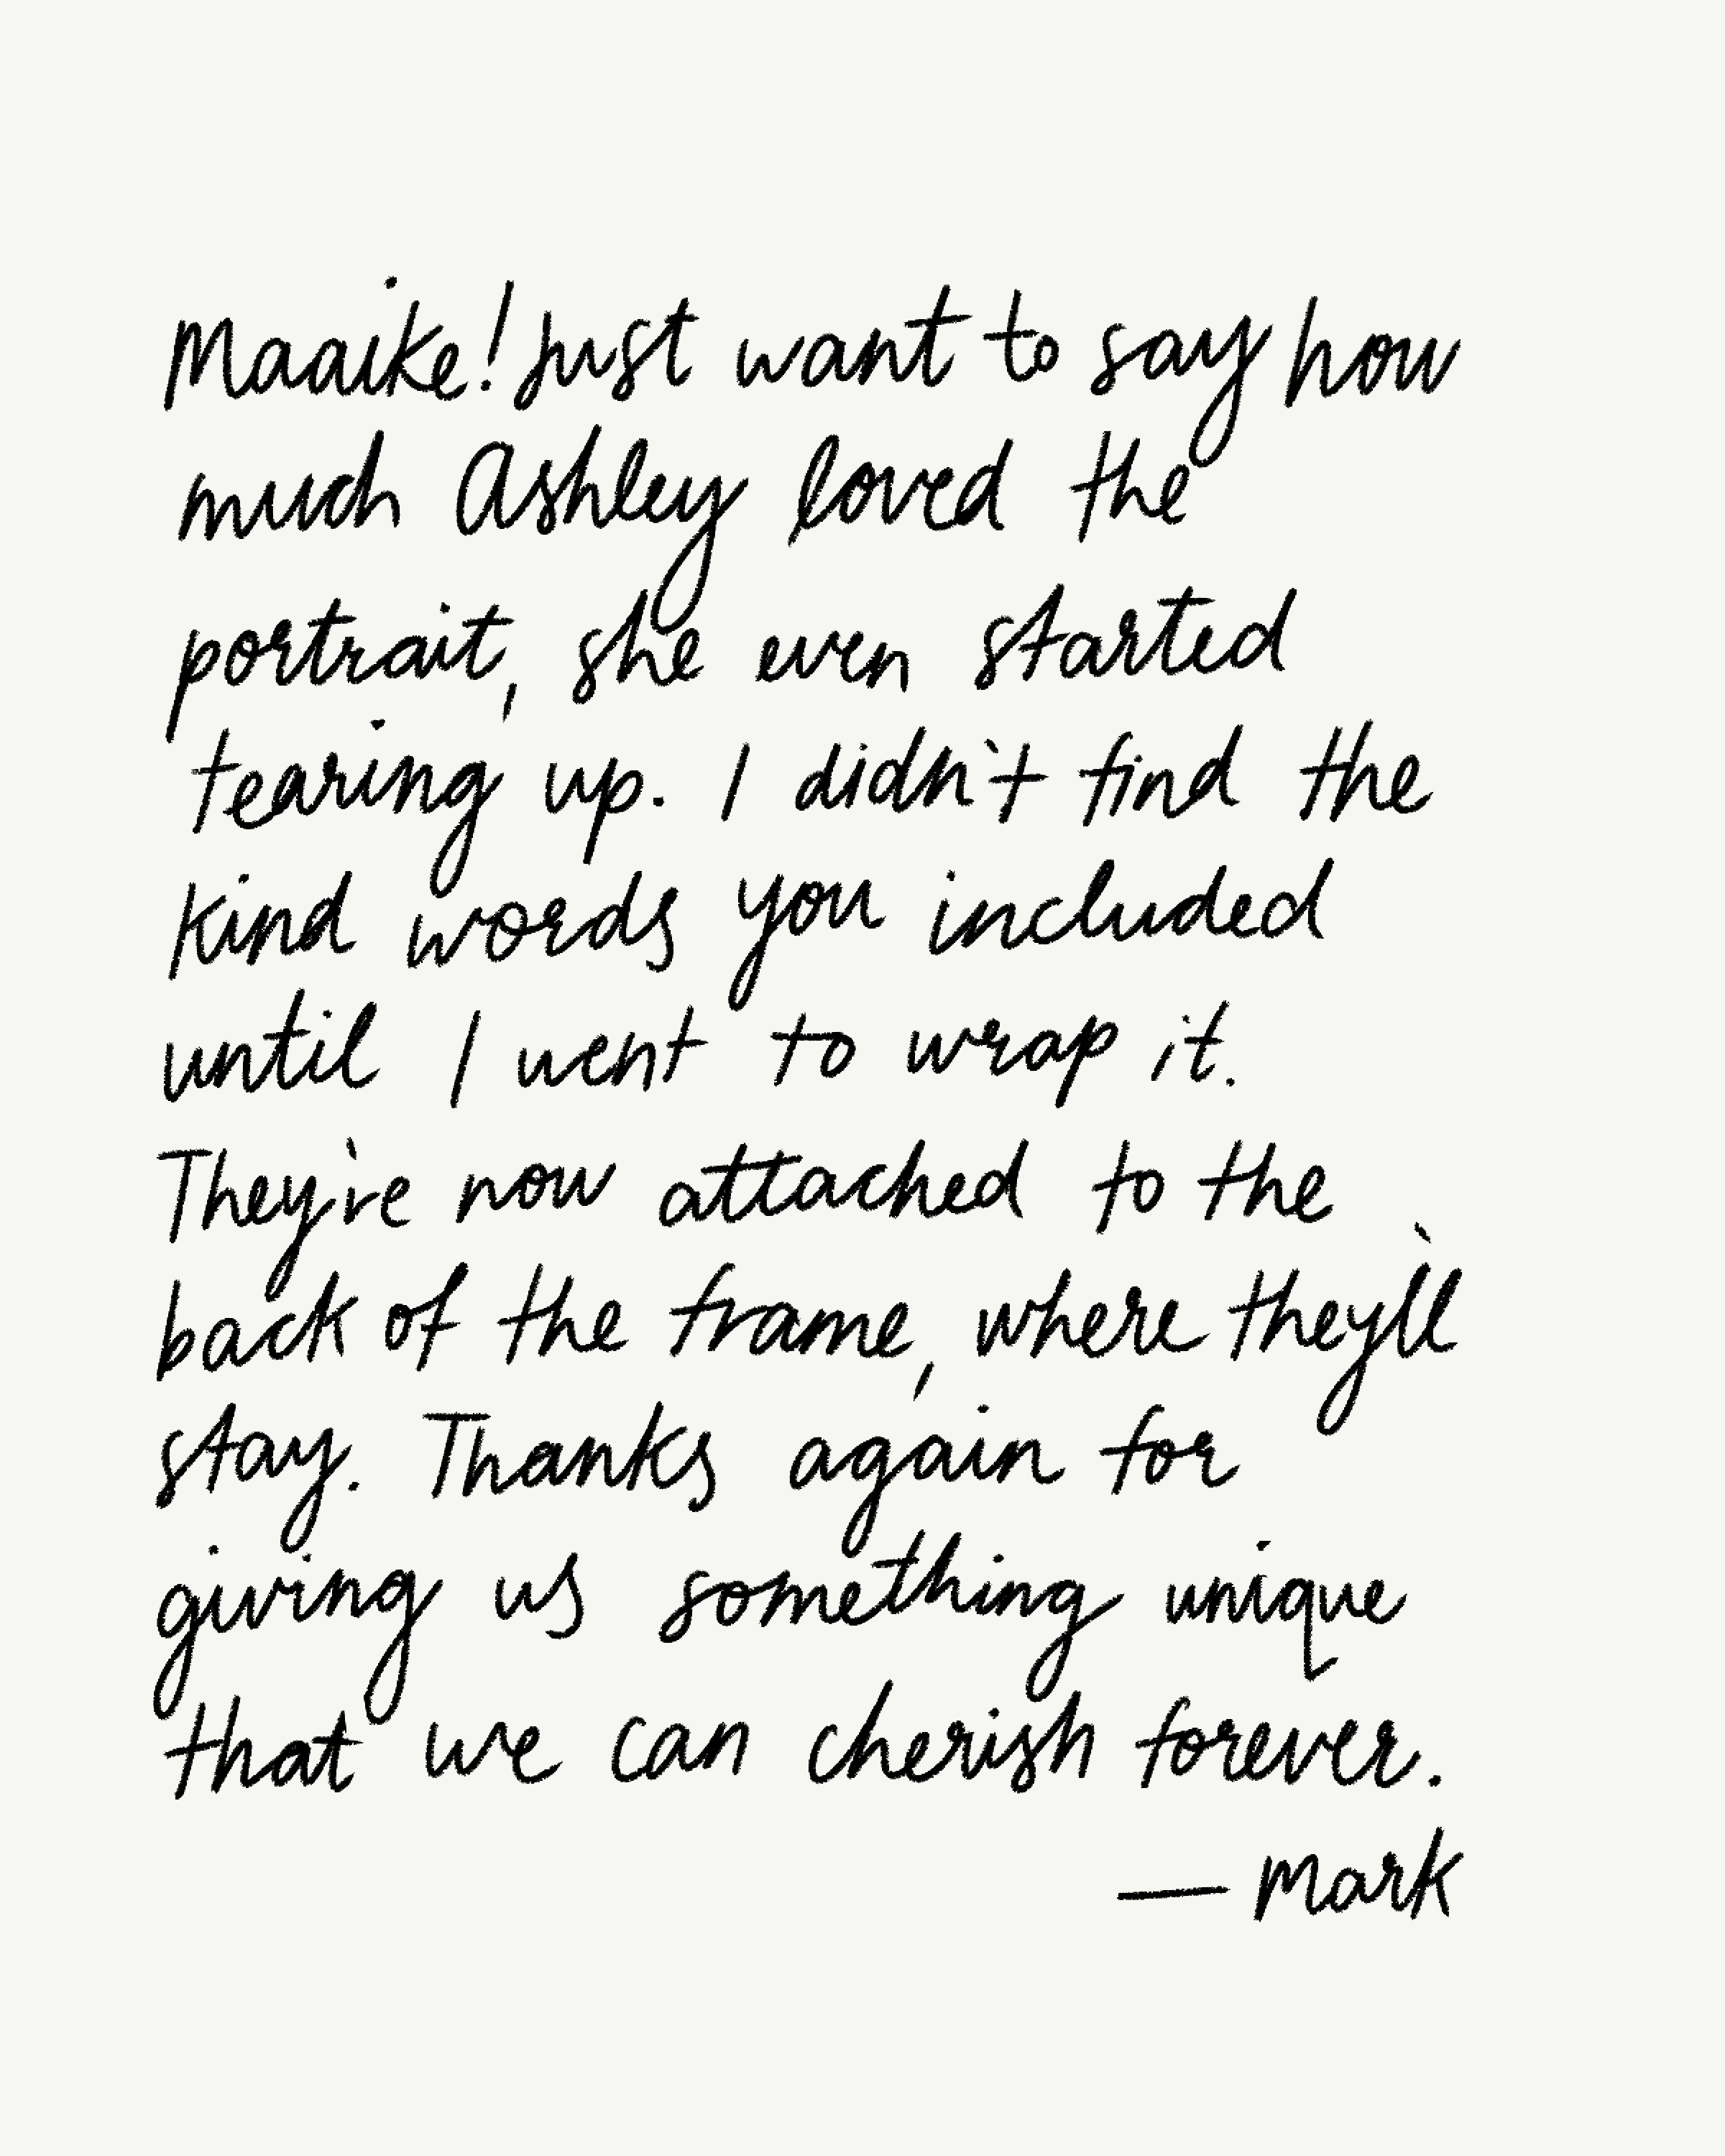 Maaike! Just want to say how
much Ashley loved the
portrait, she even started
tearing up. I didn't find the
kind words you included
until I went to wrap it.
They're now attached to the
back of the frame, where they'll
stay. Thanks again for
giving us something unique
that we can cherish forever.
— Mark